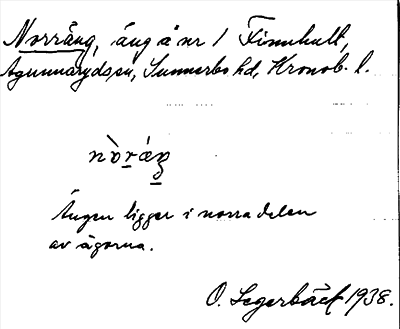 Norräng, äng å nr 1 Finnhult,
Agunnaryds sn, Sunnerbo hd, Kronob. l.
Ängen ligger i norra delen
av ägorna.
O. Segerbäck 1938.